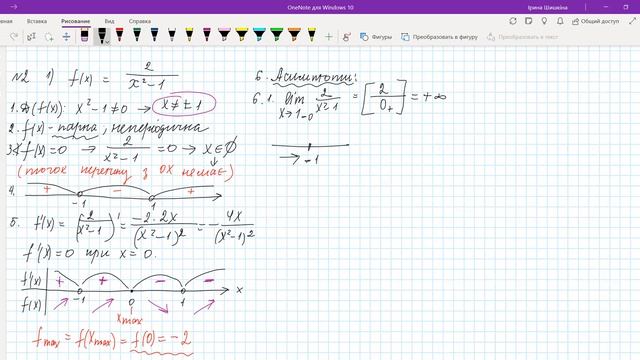 OneNote для Windows 10
Ірина Шишкіна
Рисование
Вид
Общий доступ
Фигуры
Рукописный фрагмент в фигуру
Преобразовать в фигуру
№2 1) f(x) = 2/(x²-1)
1. D(f(x)): x²-1≠0 → x≠±1
2. f(x) - парна, неперіодична
3. f(x)=0 → 2/(x²-1) =0 → x∈∅
(точок перетину з OX немає)
4. + - +
-1 1
5. f'(x) = (2/(x²-1))' = -2·2x/(x²-1)² = -4x/(x²-1)²
f'(x)=0 при x=0.
f'(x) + + - -
f(x) -1 0 1 x
x max
f max = f(x max) = f(0) = -2
6. Асимптоти:
6.1. lim x→1-0 2/(x²-1) = [2/0+] = +∞
→ -1